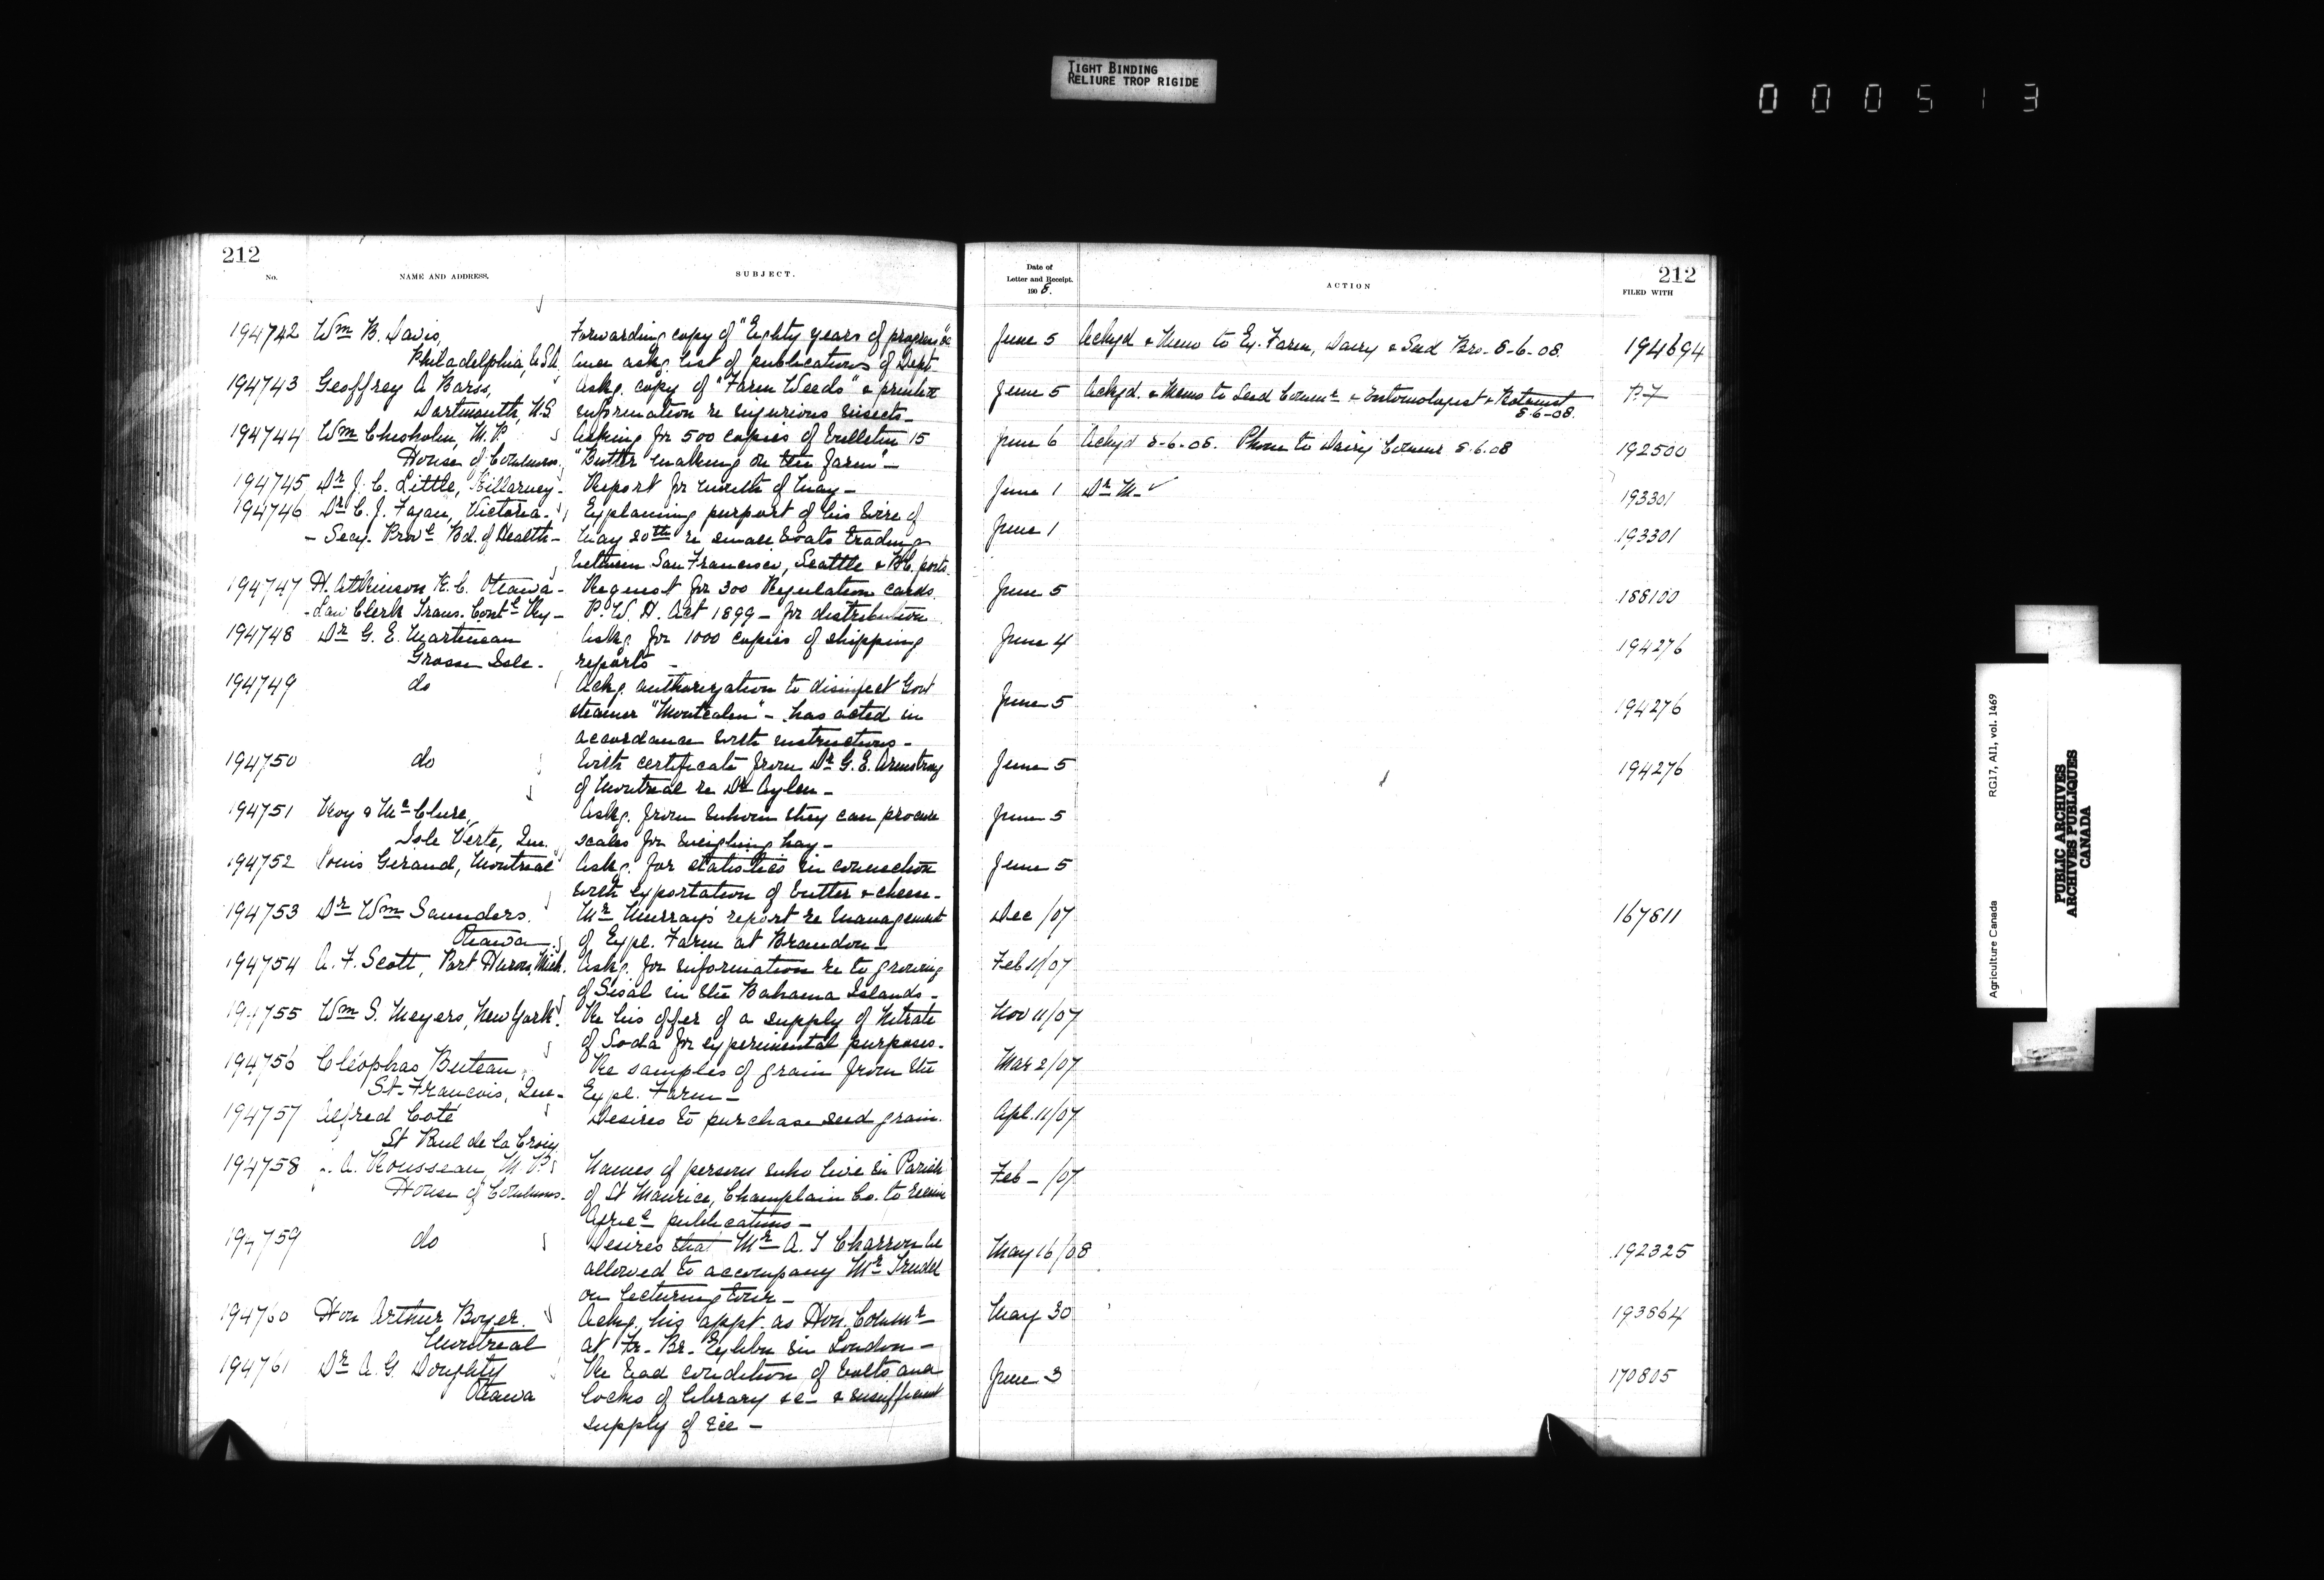 TIGHT BINDING
RELIURE TROP RIGIDE
0 0 0 5 1 3
212
No.
NAME AND ADDRESS.
SUBJECT.
Date of
Letter and Receipt.
190 8.
ACTION
212
FILED WITH
194742 Wm B. Davis, Forwarding copy of "Eighty years of progress" &c June 5 Ackgd & Memo to Ex. Farm, Dairy & Seed Brs. 8-6-08. 194694
Philadelphia, USA, askg. list of publications of Dept.
194743 Geoffrey A Barss, Askg. copy of "Farm Weeds" & printed June 5 Ackgd. & Memo to Seed Commr & Entomologist & Botanist P.7
Dartmouth, N.S information re injurious insects - 8-6-08.
194744 Wm Chisholm, M.P. Asking for 500 copies of bulletin 15 June 6 Ackgd 8-6-08. Phone to Dairy Commr 8.6.08 192500
House of Commons. "Butter making on the farm" -
194745 Dr J. C. Little, Killarney - Report for month of May - June 1 Dr M. ✓ 193301
194746 Dr C. J. Fagan, Victoria - Explaining purport of his wire of June 1 193301
- Secy. Provl Bd. of Health - May 20th re small boats trading
between San Francisco, Seattle & B.C. ports.
194747 H. Atkinson K.C. Ottawa - Request for 300 Regulation cards June 5 188100
- Law Clerk Trans. Contl Ry - P. W. H. Act 1899 - for distribution
194748 Dr G. E. Martineau Askg. for 1000 copies of shipping June 4 194276
Grosse Isle - reports -
194749 do Ackg. authorization to disinfect Govt June 5 194276
steamer "Montcalm" - has acted in
accordance with instructions -
194750 do With certificate from Dr G. E. Armstrong June 5 194276
of Montreal re Dr Aylen -
194751 Roy & McClure, Askg. from whom they can procure June 5
Isle Verte, Que. scales for weighing hay -
194752 Louis Girand, Montreal Askg. for statistics in connection June 5
with exportation of butter & cheese -
194753 Dr Wm Saunders. Mr Murray's report re management Dec /07 167811
Ottawa of Expl. Farm at Brandon -
194754 A. F. Scott, Port Huron, Mich. Askg. for information re to growing Feb 11/07
of Sisal in the Bahama Islands -
194755 Wm S. Meyers, New York. Re his offer of a supply of Nitrate Nov 11/07
of Soda for experimental purposes -
194756 Cléophas Buteau, Re samples of grain from the Mar 2/07
St-Francois, Que - Expl. Farm -
194757 Alfred Coté Desires to purchase seed grain. Apl. 11/07
St Paul de la Croix
194758 A. Rousseau, M.P. Names of persons who live in Parish Feb - /07
House of Commons. of St Maurice, Champlain Co. to receive
Agricl publications -
194759 do Desires that Mr A. T Charron be May 16/08 192325
allowed to accompany Mr Trudel
on lecturing tour -
194760 Hon Arthur Boyer. Ackg. his appt. as Hon. Commr May 30 193864
Montreal at Fr. Br. Exhbn in London -
194761 Dr A. G. Doughty Re bad condition of bolts and June 3 170805
Ottawa locks of library &c - & insufficient
supply of ice -
Agriculture Canada RG17, AII, vol. 1469
PUBLIC ARCHIVES
ARCHIVES PUBLIQUES
CANADA